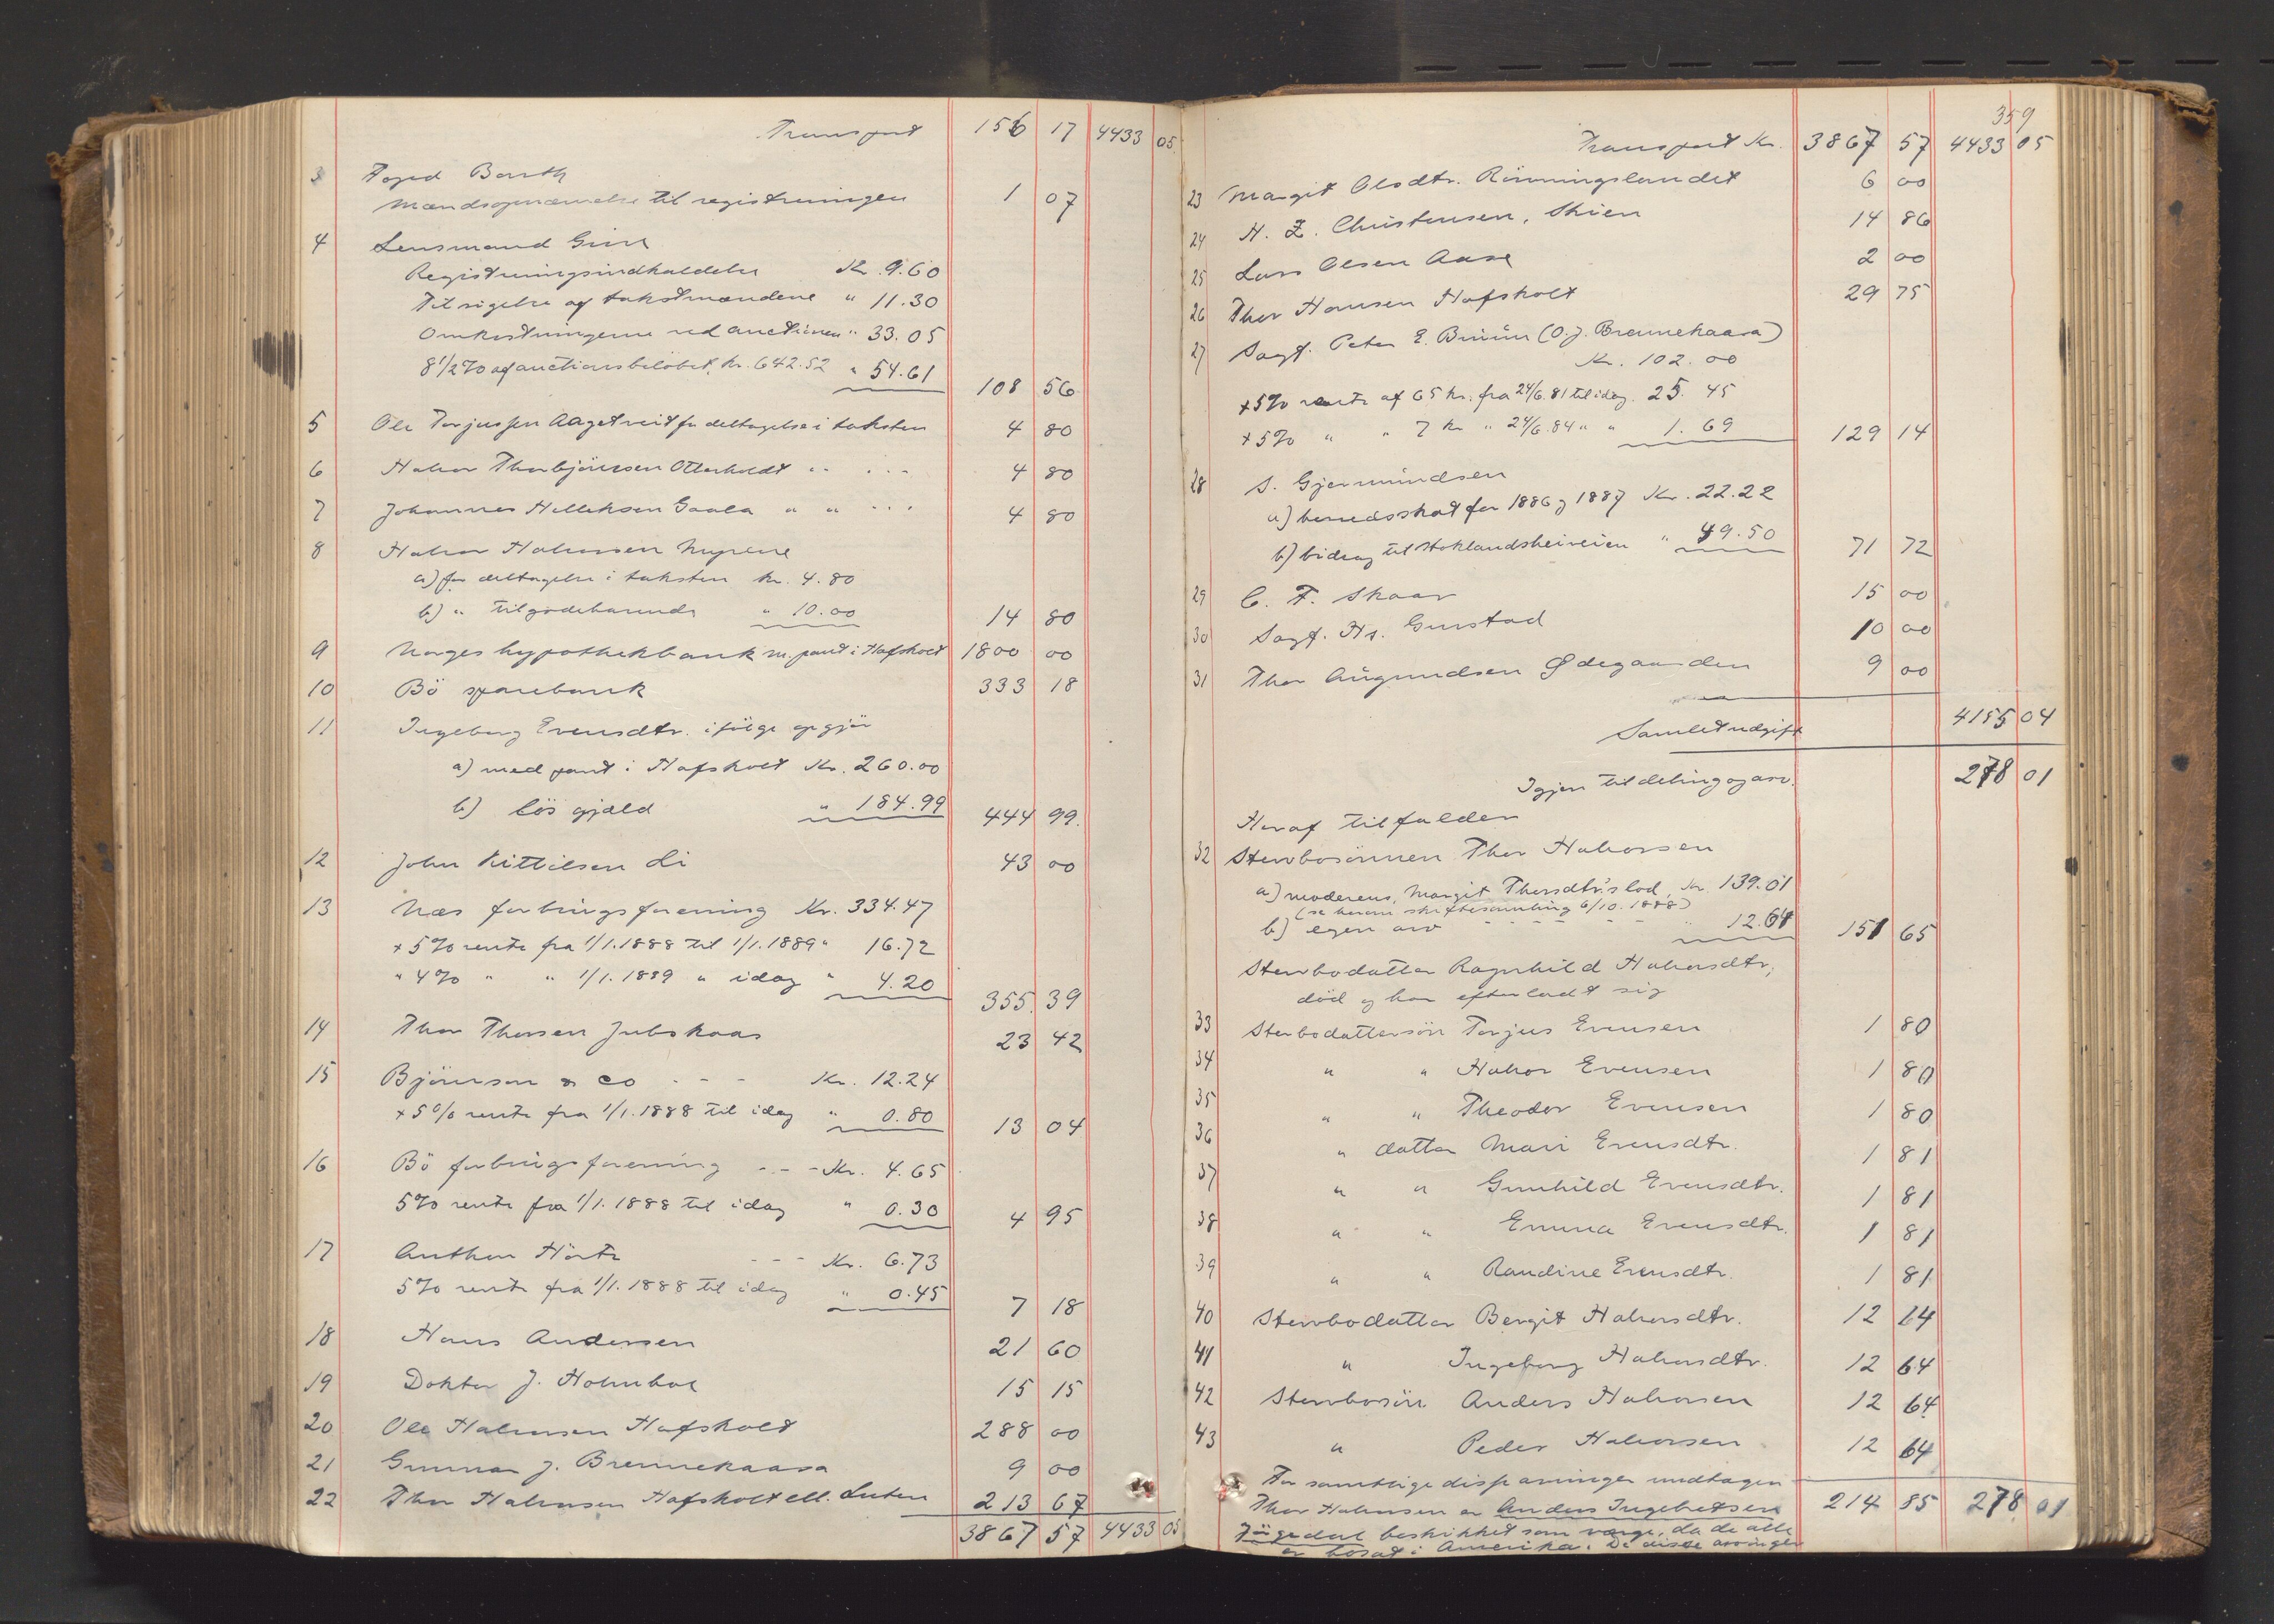 Transport 156 17 4433 05
3 Foged Barth
Mændsopnævnelse til registreringen 1 07
4 Lensmand Gire
Registreringsindholdelse Kr. 9.60
Tilsigelse af takstmændene " 11.30
Omkostningerne ved auctionen " 33.05
8 1/2 % af auctionsbeløbet, kr. 642.52 " 54.61 108 56
5 Ole Torjussen Aagetveit for deltagelse i taksten 4 80
6 Halvor Thorbjörnsen Otterholdt " " . . . 4 80
7 Johannes Helleksen Gaala " " . . . 4 80
8 Halvor Halvorsen Nupene
a) for deltagelse i taksten kr. 4.80
b) " tilgodehavende " 10.00 14 80
9 Norges hypothekbank m. pant i Hafsholt 1800 00
10 Bö sparebank 333 18
11 Ingeborg Evensdtr. ifölge opgjör
a) med pant i Hafsholt Kr. 260.00
b) lös gjæld " 184.99 444 99.
12 John Kittilsen Li 43 00
13 Næs forbrugsforening Kr. 334.47
+ 5 % rente fra 1/1.1888 til 1/1.1889 " 16.72
" 4 % " " 1/1.1889 " idag " 4.20 355.39
14 Thor Thorsen Jubskaas 23 42
15 Björnson & co - - - Kr. 12.24
+ 5 % rente fra 1/1.1888 til idag " 0.80 13 04
16 Bö forbrugsforening - - - Kr. 4.65
5 % rente fra 1/1.1888 til idag " 0.30 4 95
17 Anthon Hörte - - - Kr. 6.73
5 % rente fra 1/1.1888 til idag " 0.45 7 18
18 Hans Andersen 21 60
19 Doktor J. Holmboe 15 15
20 Ole Halvorsen Hafsholt 288 00
21 Gunnar J. Brennekaasa 9 00
22 Thor Halvorsen Hafsholt ell. Luten 213 67
3867 57 4433 05
359
Transport Kr. 3867 57 4433 05
23 Margit Olsdtr. Rönningslandet 6 00
24 H. Z. Christensen, Skien 14 86
25 Lars Olsen Aase 2 00
26 Thor Hansen Hafsholt 29 75
27 Sagf. Peter E. Bruun (O. J. Brennekaasa)
Kr. 102.00
+ 5 % rente af 65 kr. fra 24/6.81 til idag. 25.45
+ 5 % " " 7 kr " 24/6.84 " " 1.69 129 14
28 S. Gjermundsen
a) herredsskat for 1886 og 1887 Kr. 22.22
b) bidrag til Stoklandsheiveien " 49.50 71 72
29 C. F. Skaar 15 00
30 Sagf. Hs. Gurstad 10 00
31 Thor Aügundsen Ødegaarden 9 00
Samlet udgift 4155 04
Igjen til deling og arv. 278 01
Heraf tilfalder
32 Stervbosönnen Thor Halvorsen
a) moderens, Margit Thorsdtr's lod, Kr. 139.01
(se herom skiftesamling 6/10.1888)
b) egen arv - - - - - - " 12.64 151 65
Stervbodatter Ragnhild Halvorsdtr,
död og har efterladt sig
33 Stervbodattersön Torjus Evensen 1 80
34 " " Halvor Evensen 1 80
35 " " Theodor Evensen 1 80
36 " datter Mari Evensdtr. 1 81
37 " " Gunhild Evensdtr. 1 81
38 " " Emma Evensdtr. 1 81
39 " " Randine Evensdtr. 1 81
40 Stervbodatter Bergit Halvorsdtr. 12 64
41 " Ingeborg Halvorsdtr. 12 64
42 Stervbosön Anders Halvorsen 12 64
43 " Peder Halvorsen 12 64
For samtlige disse arvinger undtagen
Thor Halvorsen er Anders Ingebretsen 214 85 278 01
beskikket som værge, da de alle
er bosat i Amerika. De disse arvinger